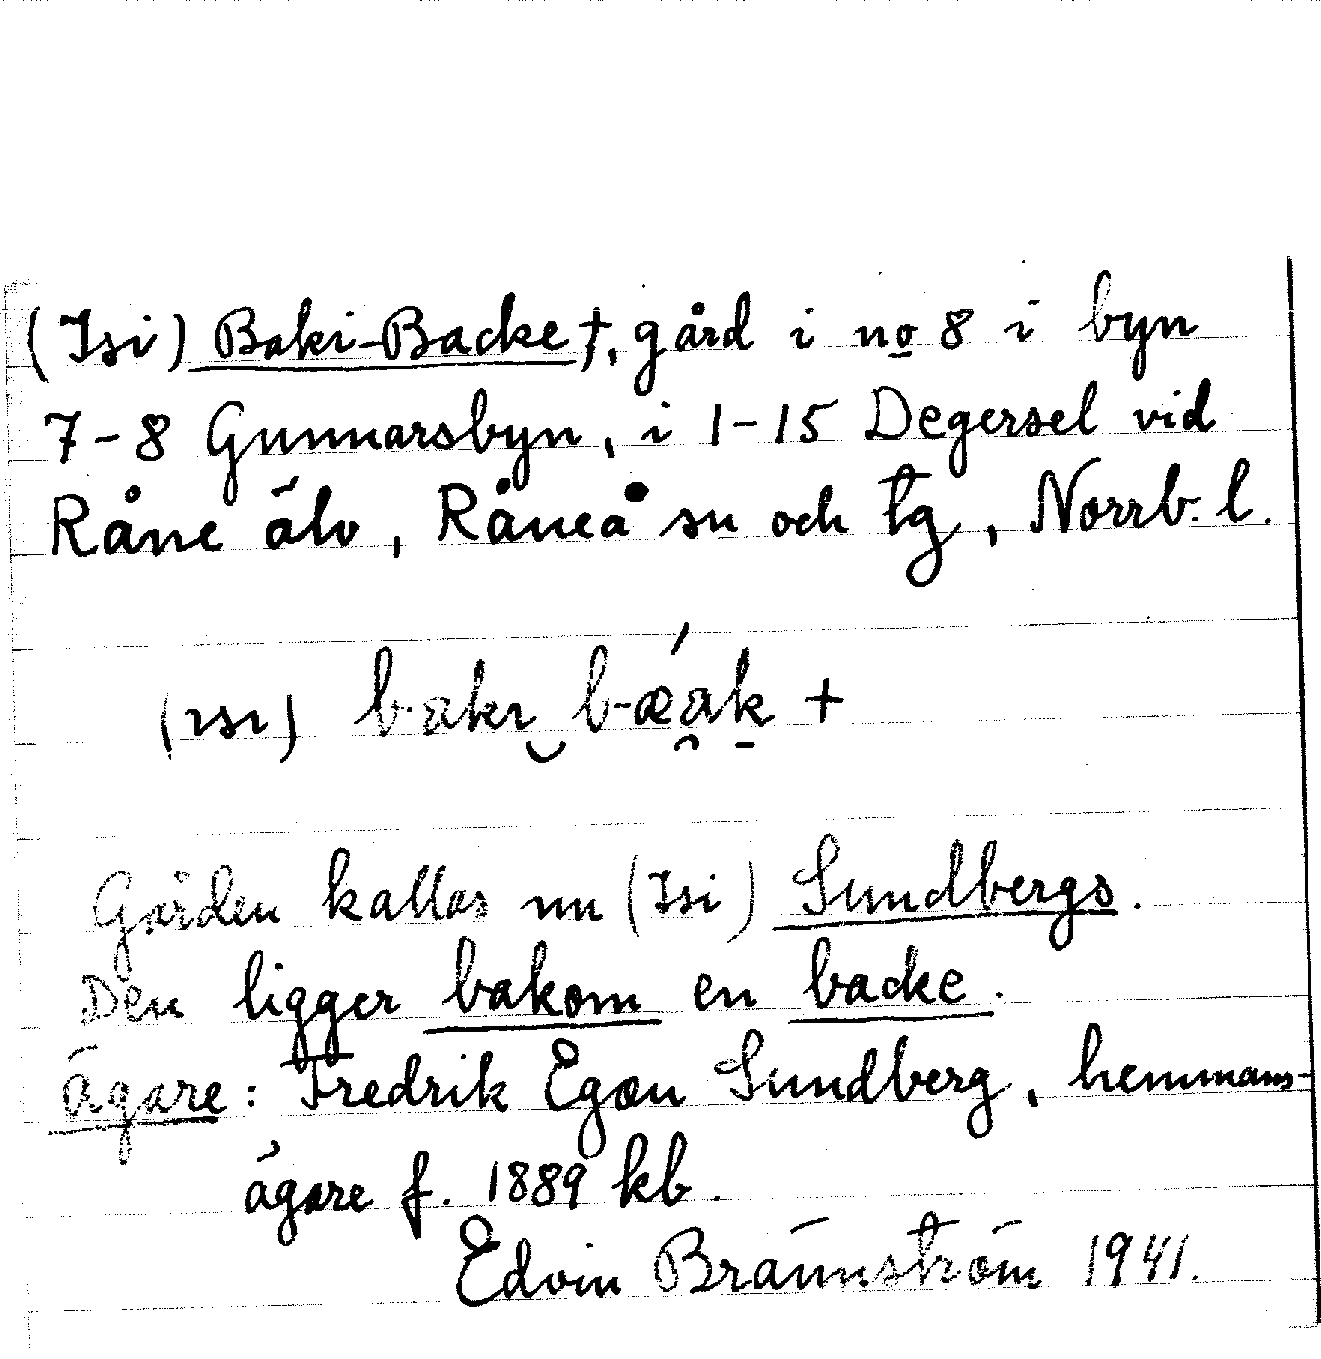 (Isi) Baki-Backe †, gård i no 8 i byn
7-8 Gunnarsbyn, i 1-15 Degersel vid
Råne älv, Råneå sn och tg, Norrb. l.
(ısı) bakı bæak +
Gården kallas nu (Isi) Sundbergs.
Den ligger bakom en backe.
Ägare: Fredrik Egon Sundberg, hemmans-
ägare f. 1889 kb.
Edvin Brännström 1941.